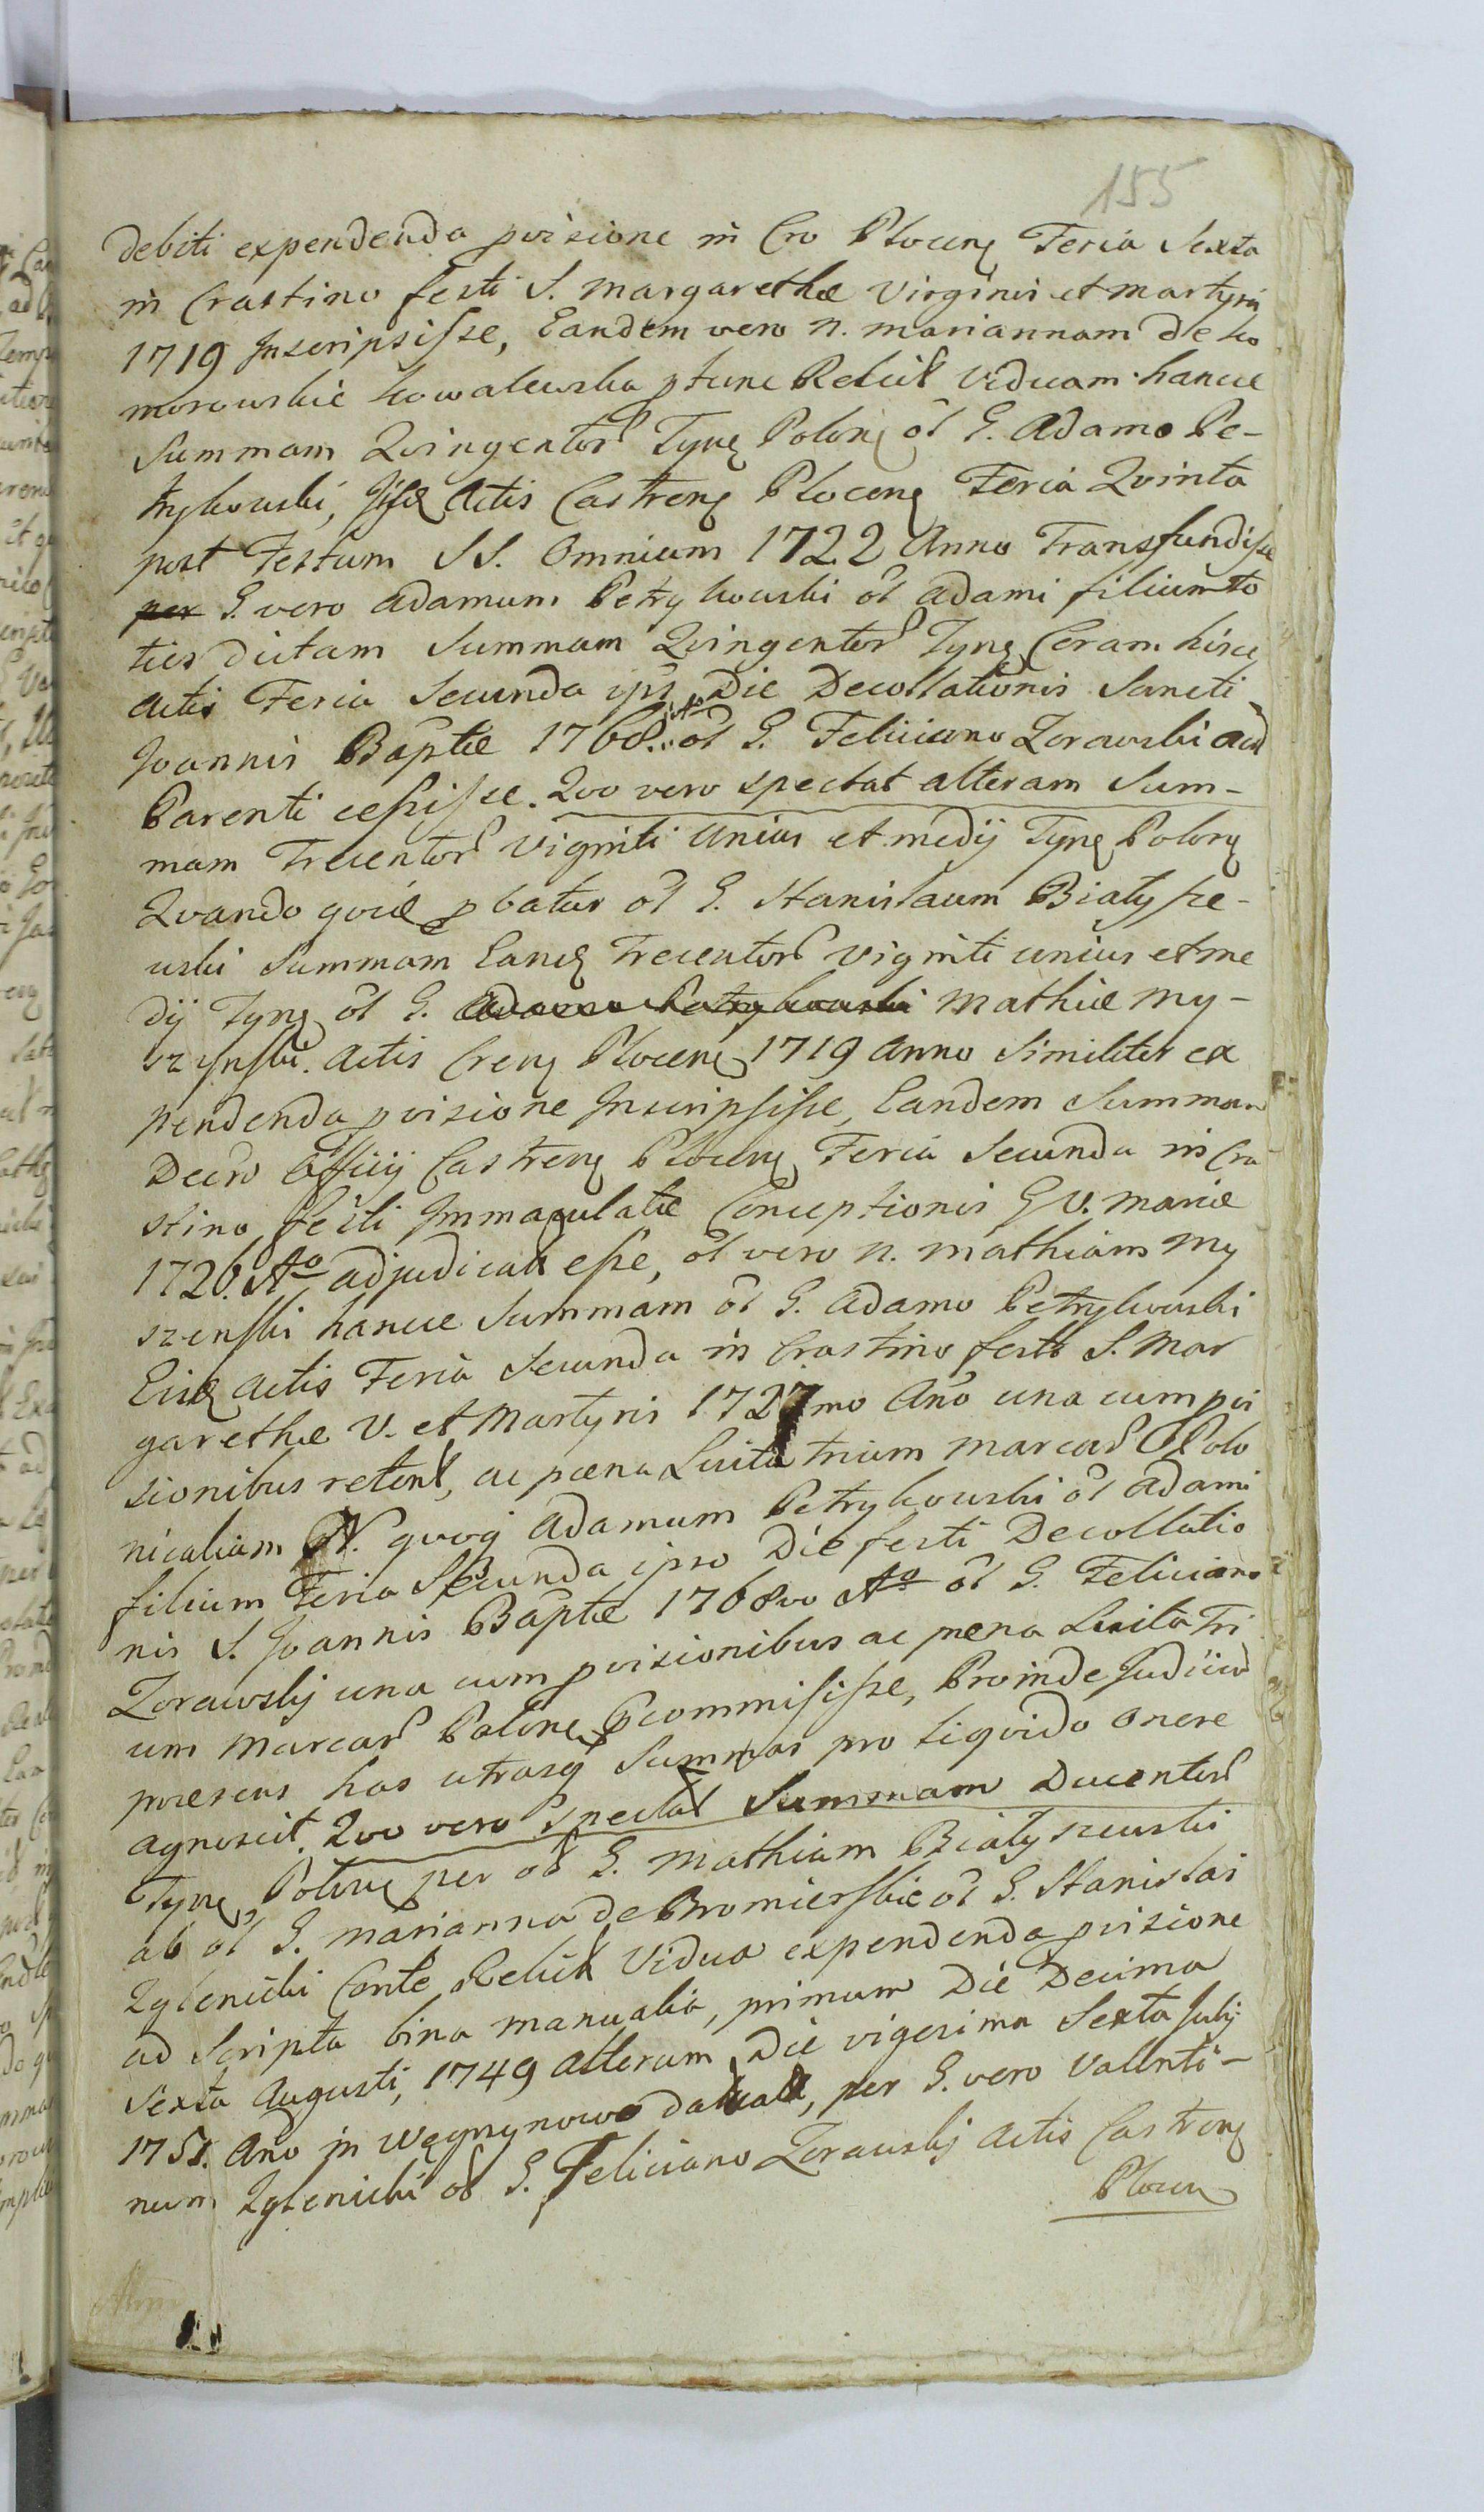 155
debiti expendenda pvisione in Cro Plocen Feria Sexta
in Crastino festi S. Margarethæ Virginis et Martyris
1719 Inscripsisse, Eandem vero N. Mariannam de Ko
morowskie Kowalewska ptunc Relict Viduam hancce
Summam Qvingentor Tynf Polon ol G. Adamo Pe-
trykowski, Actis Castren Plocen Feria Qvinta
post Festum SS. Omnium 1722 Anno Transfundisse
per G. vero Adamum Petrykowski ol Adami filium to
ties dictam Summam Qvingentor Tynf Ceram hisce
Actis Feria Secunda ips Die Decollationis Sancti
Joannis Baptæ 1768 ol G. Feliciano Zorawski Act
Parenti cessisse. Qvo vero spectat alteram Sum-
mam Trecentor Viginti Unius et medij Tynf Polon
Qvando qvidē pbatur ol G. Stanislaum Białysze-
wski Summam Eand Trecentor Viginti unius et me
dij Tynf ol G. Adamo Petrykowski Mathiæ My-
szynski. Actis Cren Plocen 1719 Anno Similiter ex
pendenda pvisione Inscripsisse, Eandem Summam
Decro Officij Castren Plocen Feria Secunda in Cra
stino festi Immaculatæ Conceptionis B V. Mariæ
1726. Ao adjudicat esse, ol vero N. Mathiam My
szenski hancce Summam ol G. Adamo Petrykowski
Eisd Actis Feria Secunda in Crastino festi S. Mar
garethæ V. et Martyris 1727mo Ano una cum pvi
sionibus retent, ac pæna Luita trium Marcar Polo
nicaliam N. qvoq Adamum Petrykowski ol Adami
filium Feria Secunda ipso Die festi Decollatio
nis S. Joannis Baptæ 1768vo Ao ol G. Feliciano
Zorawskj una cum pvisionibus ac pæna Luita Tri
um Marcar Polon pcommisisse, Proinde Judiciu
præsens has utrasq Summas pro liqvido onere
agnoscit. Qvo vero Spectat Summam Ducentor
Tynf Polon per ol G. Mathiam Białyszewski
ab ol G. Marianna de Bromierskie ol G. Stanislai
Zglenicki Conte Relict Vidua expendenda pvisione
ad Scripta bina manualia, primum Die Decima
Sexta Augusti, 1749 alterum Die vigesima Sexta Julij
1751. Ano in Węgrzynowo datat, per G. vero Valenti-
num Zglenicki ol G. Feliciano Zorawskj Actis Castren
Plocen